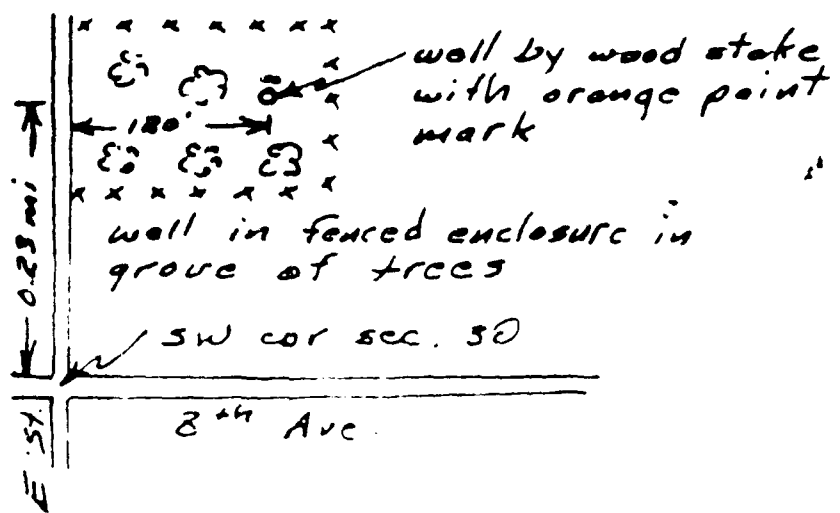 well by wood stake
with orange paint
mark
180'
0.23 mi
well in fenced enclosure in
grove of trees
SW cor sec. 30
8th Ave.
E St.